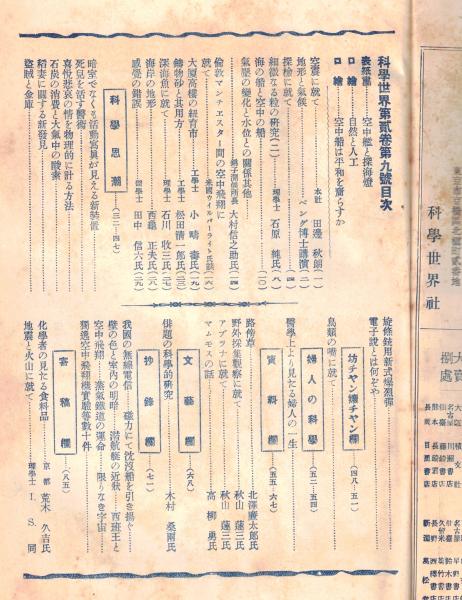 科學世界第貳卷第九號目次
表紙畫 空中艦と探海燈
口繪 自然と人工
口繪 空中船は平和を齎らすか
空囊に就て 本社 田邊 秋韻(一)
地形と氣候
探檢に就て ペング博士講演(二)
細微なる粒の研究(二) 理學士 石原 純氏(八)
海の船と空中の船
氣壓の變化と水位との關係其他
大村信之助氏(一四)
倫敦マンチエスター間の空中飛翔に
就て 米國ウイルバーライト氏談(一六)
大厦高樓の紐育市 工學士 小崎 壽氏(一九)
鑄物砂と其用方 工學士 松田清一郎氏(二三)
深海魚に就て 理學士 石川 收三氏(二七)
海岸の地形 理學士 西龜 正夫氏(二八)
感覺の錯誤 理學士 田中 信六氏(二九)
科學思潮 (三二-四七)
暗室でなくも活動寫眞が見える新裝置
死兒を活す醫術
喜悅悲哀の情を物理的に計る方法
石炭の消費と大氣中の酸素
稻妻に關する新發見
盜賊と金庫
旋條銃用新式爆裂彈
電子說とは何ぞや
坊チヤン孃チヤン欄 (四八-五一)
鳥類の嘴に就て
婦人の科學 (五二-五四)
醫學上より見たる婦人の一生
資料欄 (五五-六七)
路傍草 北澤慶太郎氏
野外採集觀察に就て 秋山 蓮三氏
アゲヅナに就て 秋山 蓮三氏
マムモスの話 高柳 勇氏
文藝欄 (六八)
俳題の科學的研究 木村 桑雨氏
抄錄欄 (七一)
我國の無線電信 磁力にて沈沒船を引き揚ぐ
壁の色と室內の明暗 潛航艇の近狀 西班王と
空中飛翔 蒸氣鐵道の運命 限りなき宇宙
獨逸空中飛翔機實驗等數十件
寄稿欄 (八五)
化學者の見たる食料品 京都 荒木 久吉氏
地震と火山に就て 理學士 I. S. 同
科學世界社